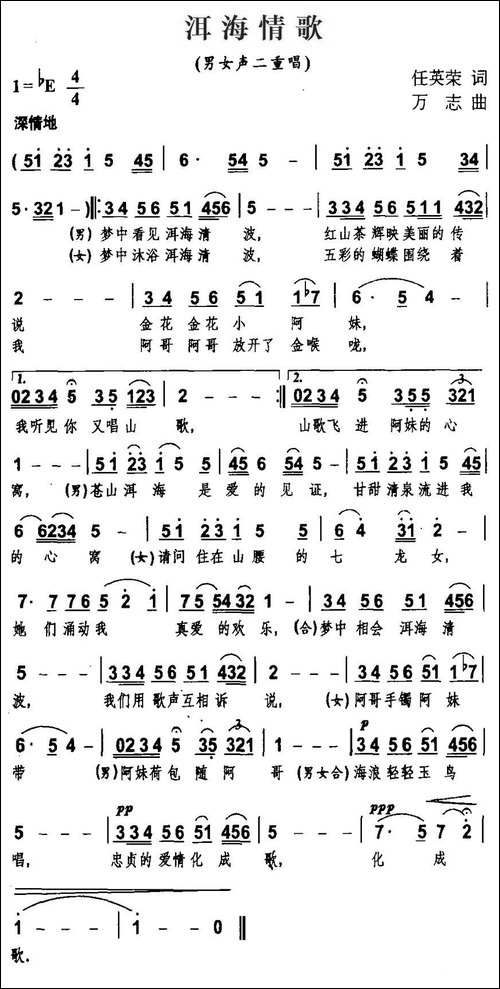 洱海情歌
(男女声二重唱)
1=♭E 4/4
任英荣 词
万志 曲
深情地
(51 23 1 5 45 | 6· 54 5 - | 51 23 1 5 5 34 |
5·321 -)‖: 34 56 51 456 | 5 - - - | 334 56 51 1 432 |
(男) 梦中看见洱海清 波, 红山茶辉映美丽的传
(女) 梦中沐浴洱海清 波, 五彩的蝴蝶围绕着
2 - - - | 34 56 56 51 1♭7 | 6· 5 4 - |
说 金花金花小阿 妹,
我 阿哥阿哥放开了金喉 咙,
1. 0234 5 35 123 | 2 - - - :‖ 2. 0234 5 355 321 |
我听见你 又唱山 歌, 山歌飞 进 阿妹的心
1 - - - | 51 23 1 5 5 | 45 6 54 5 - | 51 23 1 5 5 45 |
窝, (男)苍山洱海 是爱的见证, 甘甜清泉流进我
6 6234 5 - | 51 23 1 5 5 | 6 4 34 31· 2 |
的心窝 (女)请问住在山腰 的七龙女,
7· 77 65 2 1 | 75 54 32 1 - | 34 56 51 456 |
她 们涌动我 真爱的欢乐, (合)梦中相会洱海清
5 - - - | 334 56 51 432 | 2 - - - | 34 56 51 1♭7 |
波, 我们用歌声互相诉 说, (女)阿哥手镯阿妹
6· 5 4 - | 0234 5 35 321 | 1 - - - | p 34 56 51 456 |
带 (男)阿妹荷包随阿 哥 (男女合)海浪轻轻玉鸟
5 - - - | pp 334 56 51 456 | 5 - - - | ppp 7· 5 7 2 |
唱, 忠贞的爱情化成 歌, 化 成
1 - - - | 1 - - 0 ‖
歌.